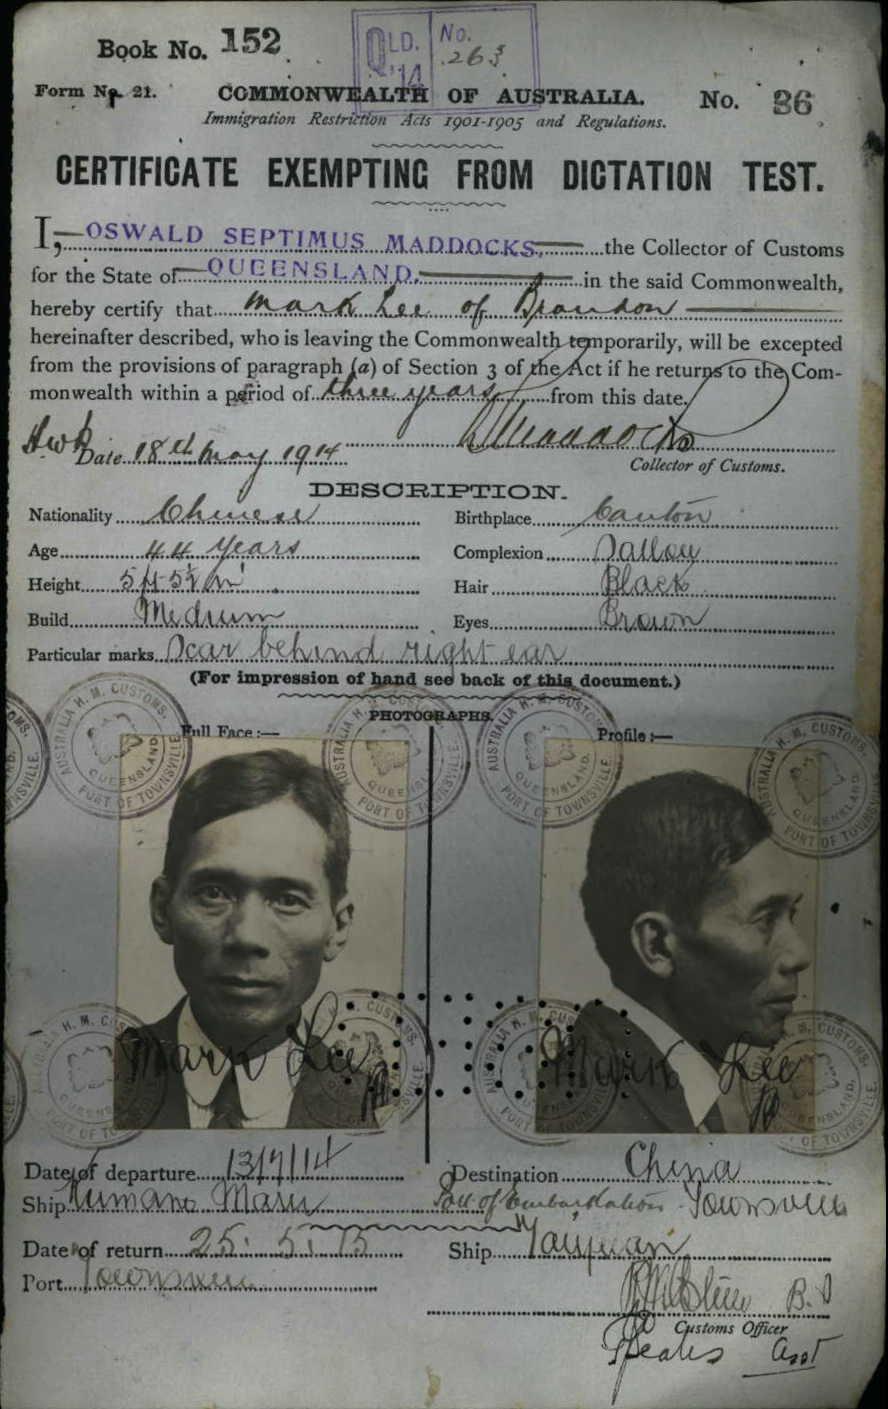 Book No. 152
QLD. No.
'14 263
Form No. 21. COMMONWEALTH OF AUSTRALIA. No. 36
Immigration Restriction Acts 1901-1905 and Regulations.
CERTIFICATE EXEMPTING FROM DICTATION TEST.
I, OSWALD SEPTIMUS MADDOCKS, the Collector of Customs
for the State of QUEENSLAND, in the said Commonwealth,
hereby certify that Mark Lee of Brandon
hereinafter described, who is leaving the Commonwealth temporarily, will be excepted
from the provisions of paragraph (a) of Section 3 of the Act if he returns to the Com-
monwealth within a period of three years from this date.
Date 18th May 1914 Maddocks
Collector of Customs.
DESCRIPTION.
Nationality Chinese Birthplace Canton
Age 44 years Complexion Sallow
Height 5 ft 5½ in Hair Black
Build Medium Eyes Brown
Particular marks Scar behind right ear
(For impression of hand see back of this document.)
PHOTOGRAPHS.
Full Face :— Profile :—
AUSTRALIA H. M. CUSTOMS. QUEENSLAND. PORT OF TOWNSVILLE.
Mark Lee Mark Lee
Date of departure 13/7/14 Destination China
Ship Kumano Maru Port of Embarkation Townsville
Date of return 25.5.15 Ship Taiyuan
Port Townsville
Customs Officer